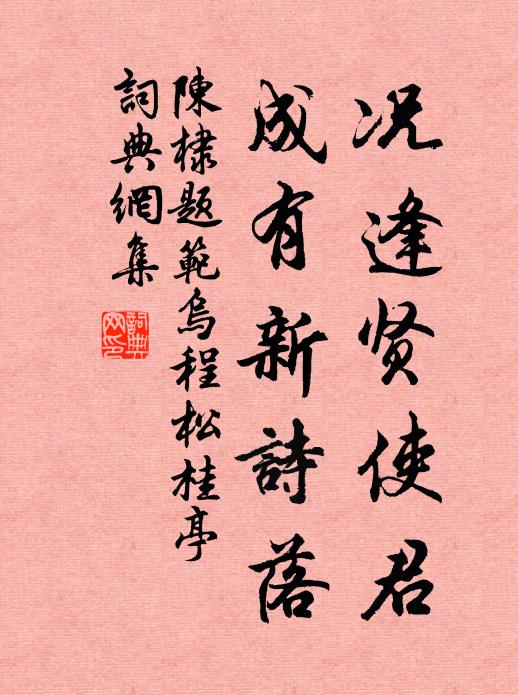 况逢贤使君
成有新詩落
陳棣题範烏程松桂亭
詞典網集
詞典
网印